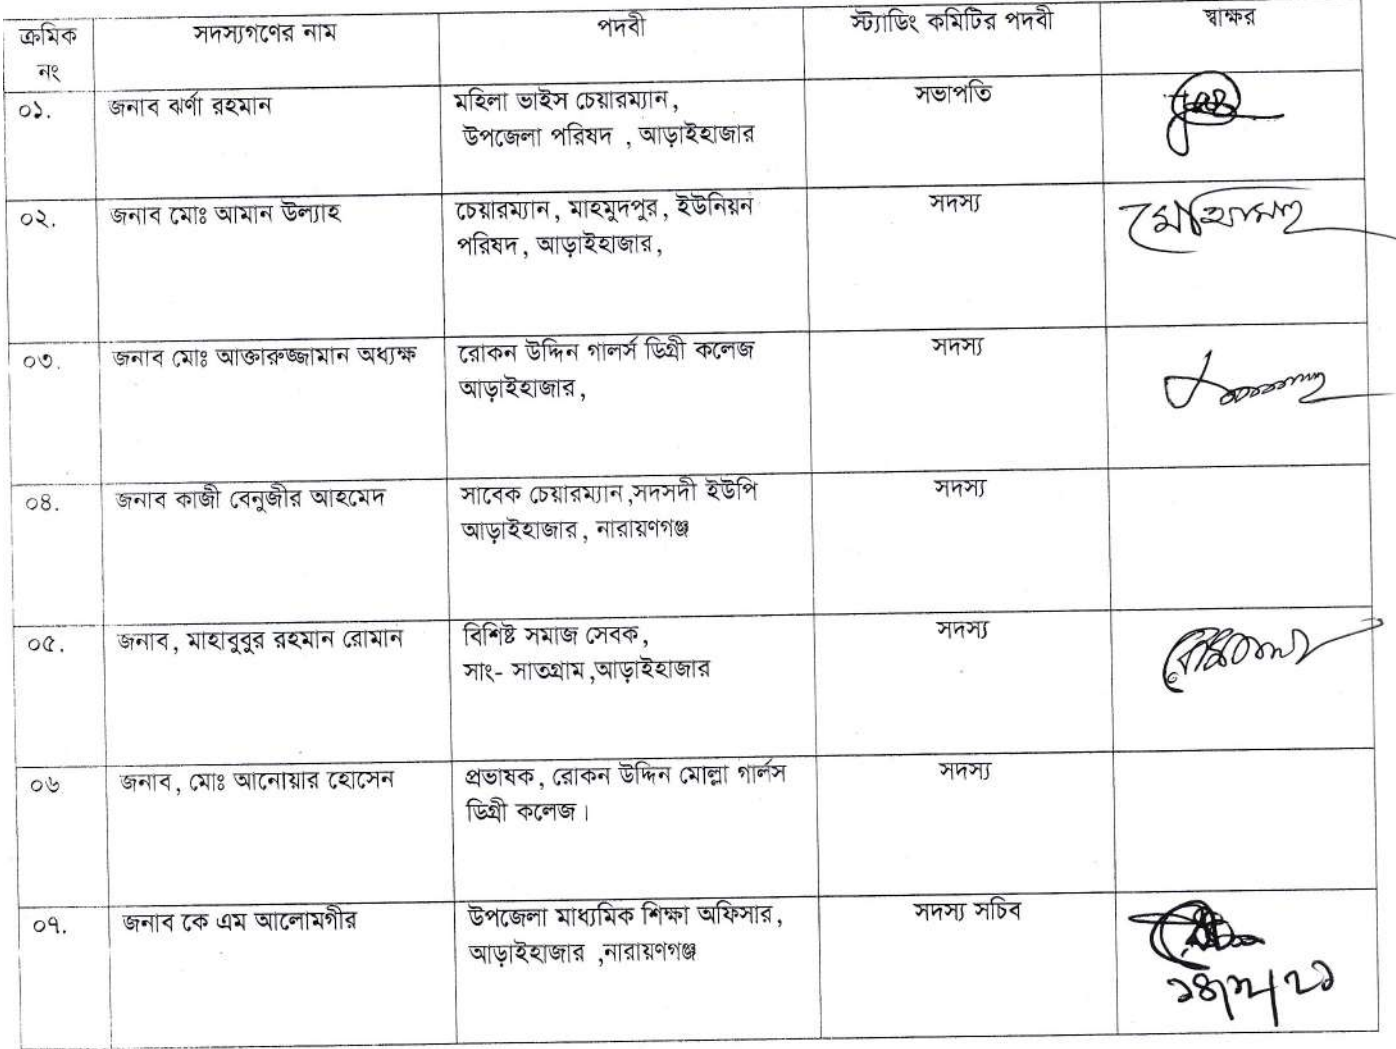 ক্রমিক নং	সদস্যগণের নাম	পদবী	স্ট্যাডিং কমিটির পদবী	স্বাক্ষর
০১.	জনাব ঝর্ণা রহমান	মহিলা ভাইস চেয়ারম্যান,	সভাপতি
উপজেলা পরিষদ , আড়াইহাজার
০২.	জনাব মোঃ আমান উল্যাহ	চেয়ারম্যান, মাহমুদপুর, ইউনিয়ন	সদস্য
পরিষদ, আড়াইহাজার,
০৩.	জনাব মোঃ আক্তারুজ্জামান অধ্যক্ষ	রোকন উদ্দিন গালর্স ডিগ্রী কলেজ	সদস্য
আড়াইহাজার,
০৪.	জনাব কাজী বেনুজীর আহমেদ	সাবেক চেয়ারম্যান,সদসদী ইউপি	সদস্য
আড়াইহাজার, নারায়ণগঞ্জ
০৫.	জনাব, মাহাবুবুর রহমান রোমান	বিশিষ্ট সমাজ সেবক,	সদস্য
সাং- সাতগ্রাম,আড়াইহাজার
০৬	জনাব, মোঃ আনোয়ার হোসেন	প্রভাষক, রোকন উদ্দিন মোল্লা গার্লস	সদস্য
ডিগ্রী কলেজ।
০৭.	জনাব কে এম আলোমগীর	উপজেলা মাধ্যমিক শিক্ষা অফিসার,	সদস্য সচিব
আড়াইহাজার ,নারায়ণগঞ্জ